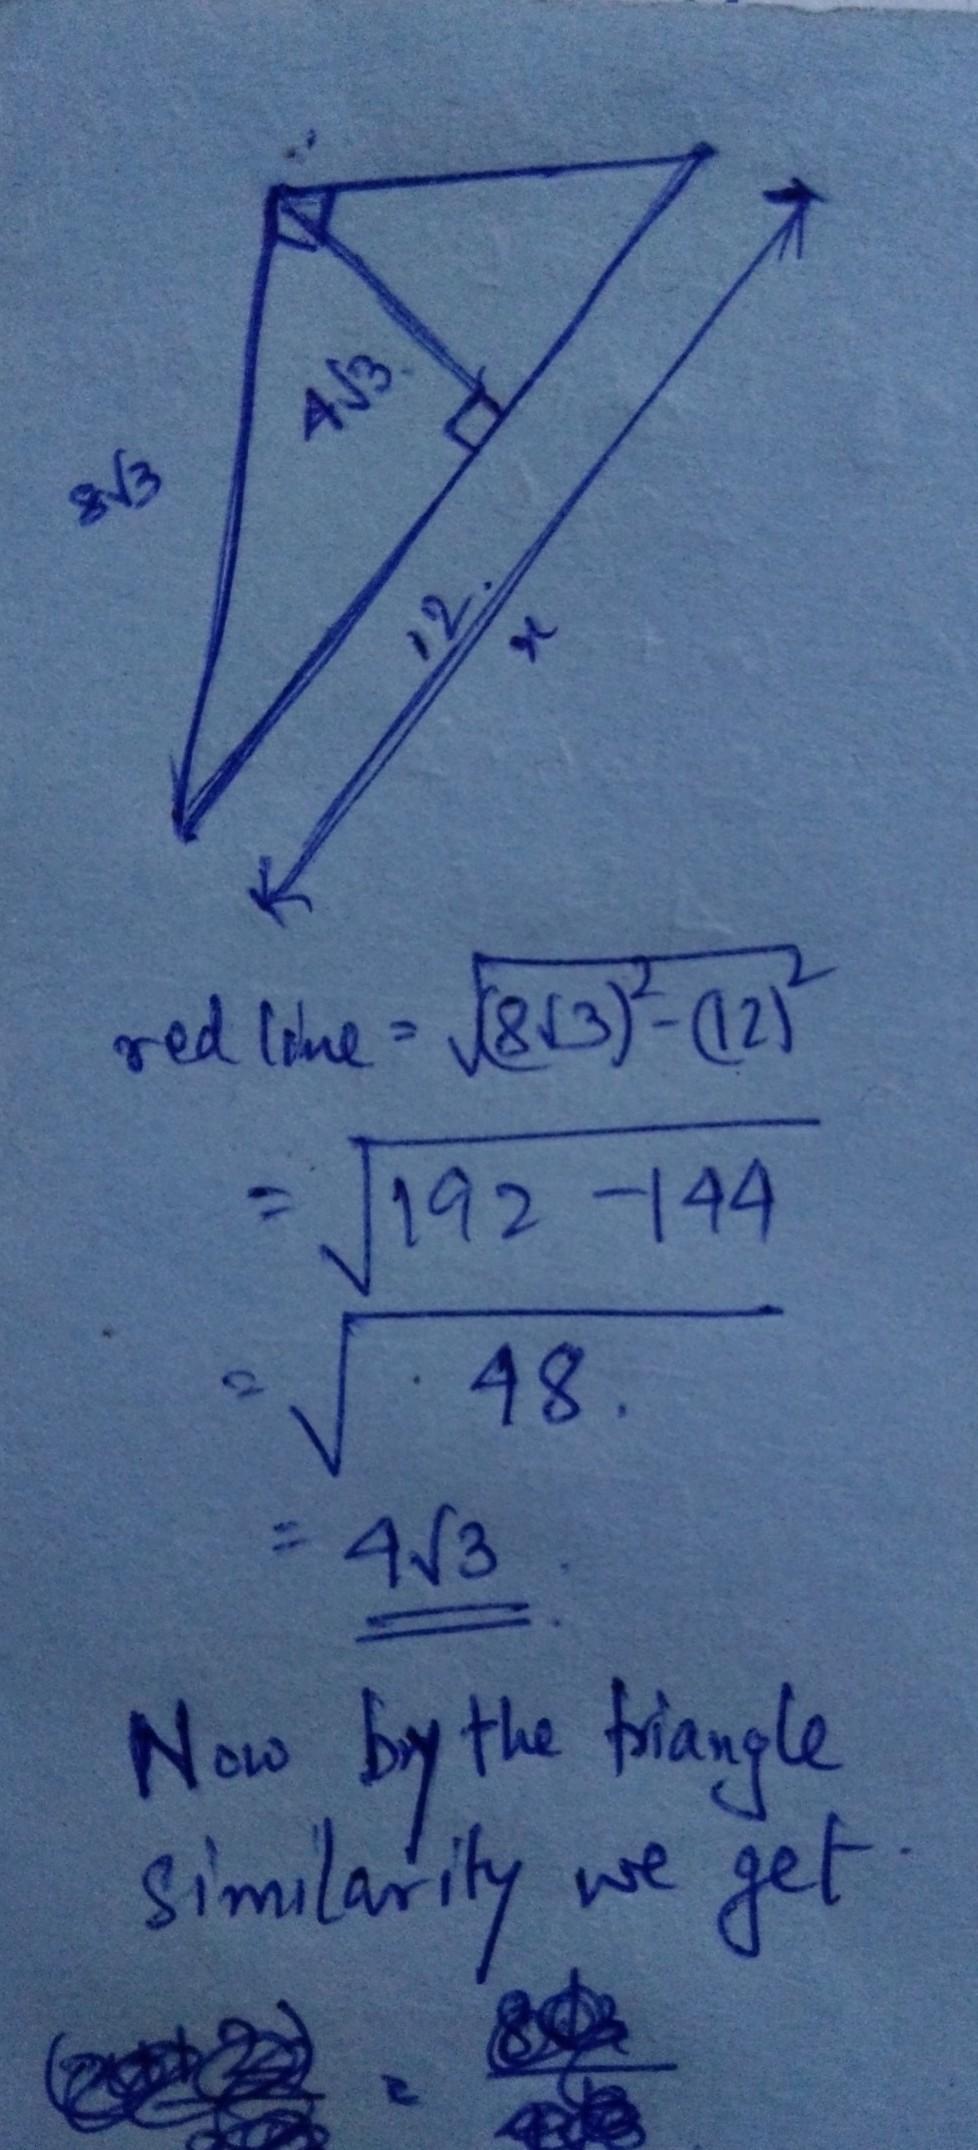 8√3
4√3
12.
x
red line = √(8√3)² - (12)²
= √192 - 144
= √48.
= 4√3.
Now by the triangle
similarity we get.
=